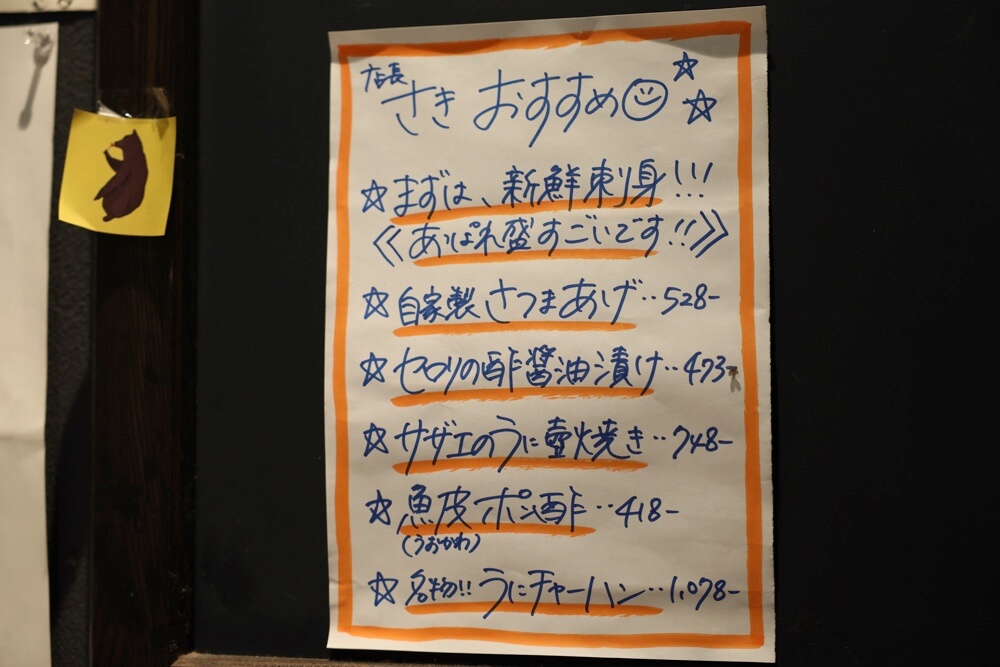 店長
さき おすすめ
☆まずは、新鮮刺身!!!
《あっぱれ盛すごいです!!》
☆自家製さつまあげ‥528-
☆セロリの酢醤油漬け‥473-
☆サザエのうに壺焼き‥748-
☆魚皮ポン酢‥418-
(うおかわ)
☆名物!!うにチャーハン‥1,078-